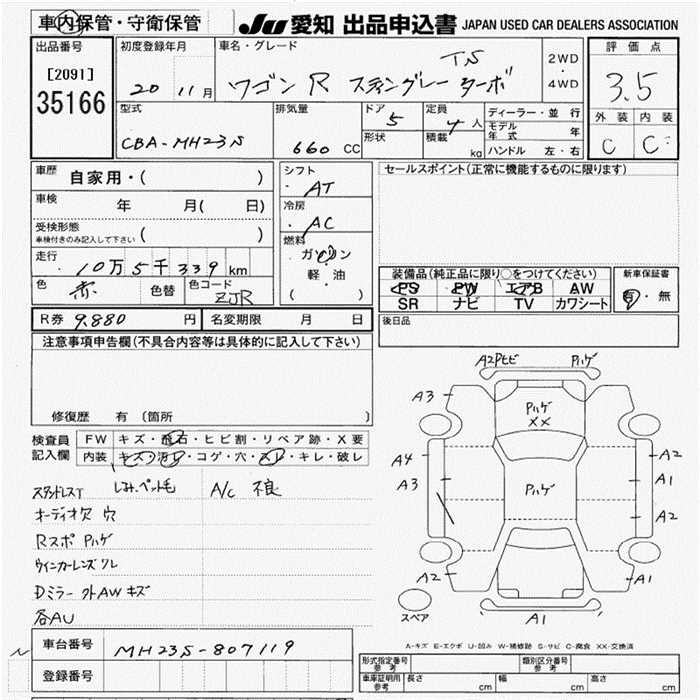 車内保管・守衛保管
JU 愛知 出品申込書 JAPAN USED CAR DEALERS ASSOCIATION
出品番号
[2091]
35166
初度登録年月
20 11月
車名・グレード
TS
ワゴン R スティングレー ターボ
2WD
・
4WD
評価点
3.5
外装 内装
C C
型式
CBA-MH23S
排気量
660 CC
ドア 5
形状
定員 4 人
積載 kg
ディーラー・並行
モデル年式 年
ハンドル 左・右
車歴 自家用・( )
車検 年 月( 日)
受検形態
車検付きのみ記入して下さい ( )
走行
10万5千339km
色 赤 色替 色コード ZJR
シフト
AT
冷房
AC
燃料
ガソリン
軽・油
( )
セールスポイント(正常に機能するものに限ります)
装備品(純正品に限り○をつけてください)
PS PW エアB AW
SR ナビ TV カワシート
新車保証書
有・無
後日品
R券 9.880 円 名変期限 月 日
注意事項申告欄(不具合内容等は具体的に記入して下さい)
修復歴 有〔箇所
検査員
記入欄
FW キズ・飛石・ヒビ割・リペア跡・X要
内装 キズ・汚レ・コゲ・穴・スレ・キレ・破レ
スタッドレスT しみ、ペット毛 A/C 不良
オーディオ欠 穴
Rスポ Pハゲ
ウインカーレンズワレ
Dミラー 外AW キズ
各AU
車台番号 MH23S-807119
登録番号
A2PヒビPハゲ
A3
Pハゲ
XX
A4
A3
Pハゲ
A2
A1
A2
A2
A1
スペア
A1
A-キズ E-エクボ U-凹み W-補修跡 S-サビ C-腐食 XX-交換済
形式指定番号
参考
類別区分番号
参考
車庫証明用
参考
長さ cm 幅 cm 高さ cm